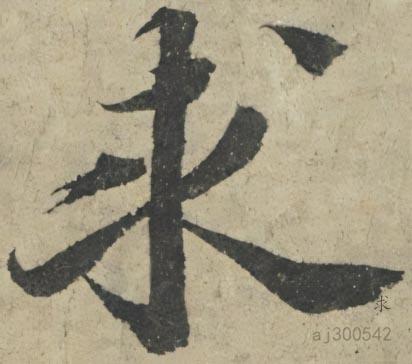 求
求
aj300542